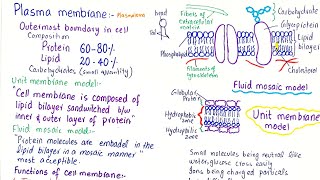 Plasma membrane:- Plasmalemma
Outermost boundary in cell
Composition
Protein 60-80%
Lipid 20-40%
Carbohydrates (small quantity)
Unit membrane model:-
"Cell membrane is composed of
lipid bilayer sandwitched b/w
inner & outer layer of protein"
Fluid mosaic model:-
Protein molecules are embaded in the
lipid bilayer in a mosaic manner
most acceptible.
Functions of cell membrane:-
Fibers of
extracellular
matrix
Carbohydrate
Glycoprotein
Lipid
bilayer
Phospholipid
filaments of
cytoskeleton
Cholesterol
Fluid mosaic model
Globular
Protein
Hydrophobic
zone
Hydrophilic
zone
Unit membrane
model
Small molecules being neutral like
water, glucose cross easily
Ions being charged particals